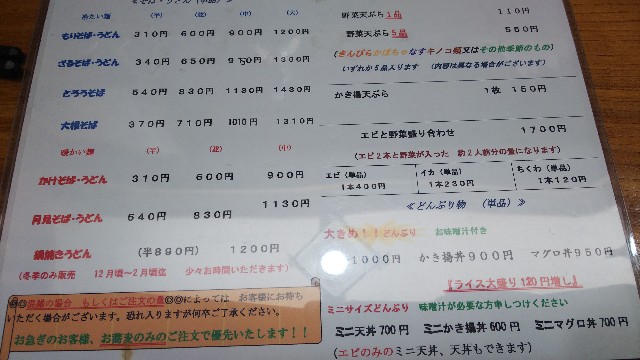 ≪そば・うどん(単品)≫
冷たい麺 (半) (並) (中) (大)
もりそば・うどん 310円 600円 900円 1200円
ざるそば・うどん 340円 650円 950円 1300円
とろろそば 540円 830円 1130円 1430円
大根そば 370円 710円 1010円 1310円
暖かい麺 (半) (並) (中)
かけそば・うどん 310円 600円 900円
月見そば・うどん 540円 830円 1130円
鍋焼きうどん (半890円) 1200円
(冬季のみ販売 12月頃~2月頃迄 少々お時間いただきます)
◎◎混雑の場合 もしくはご注文の量◎◎によっては お客様にお待ち
いただく場合がございます。恐れ入りますが何卒ご了承ください。
お急ぎのお客様、お蕎麦のみのご注文で優先いたします!!
野菜天ぷら1品 110円
野菜天ぷら5品 550円
(きんぴらかぼちゃなすキノコ類又はその他季節のもの)
いずれか5品入ります (内容は異なる場合がございます)
かき揚天ぷら 1枚 150円
エビと野菜盛り合わせ 1700円
(エビ2本と野菜が入った 約2人前分の量になります)
エビ(単品) イカ(単品) ちくわ(単品)
1本400円 1本230円 1本120円
≪どんぶり物 (単品)≫
大きめ!!どんぶり お味噌汁付き
1000円 かき揚丼900円 マグロ丼950円
『ライス大盛り120円増し』
ミニサイズどんぶり 味噌汁が必要な方申しつけください
ミニ天丼700円 ミニかき揚丼600円 ミニマグロ丼700円
(エビのみのミニ天丼、天丼もできます)